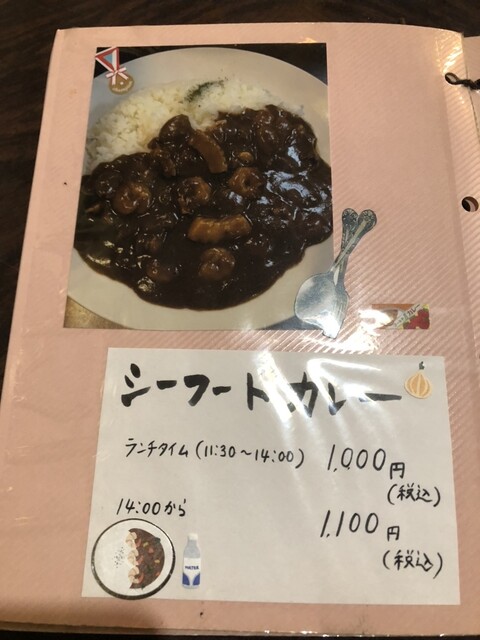 シーフードカレー
ランチタイム(11:30～14:00) 1,000円
(税込)
14:00から 1,100円
(税込)
WATER